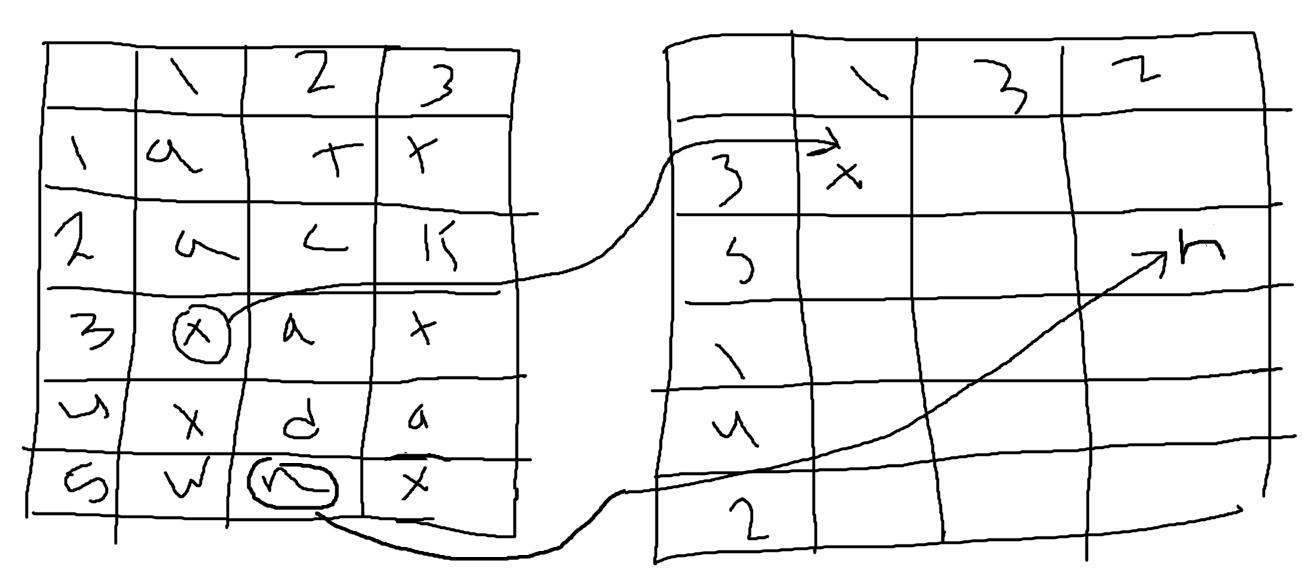 1 2 3
1 a r x
2 a c K
3 x a x
4 x d a
5 w n x
1 3 2
3 x
5 n
1
4
2